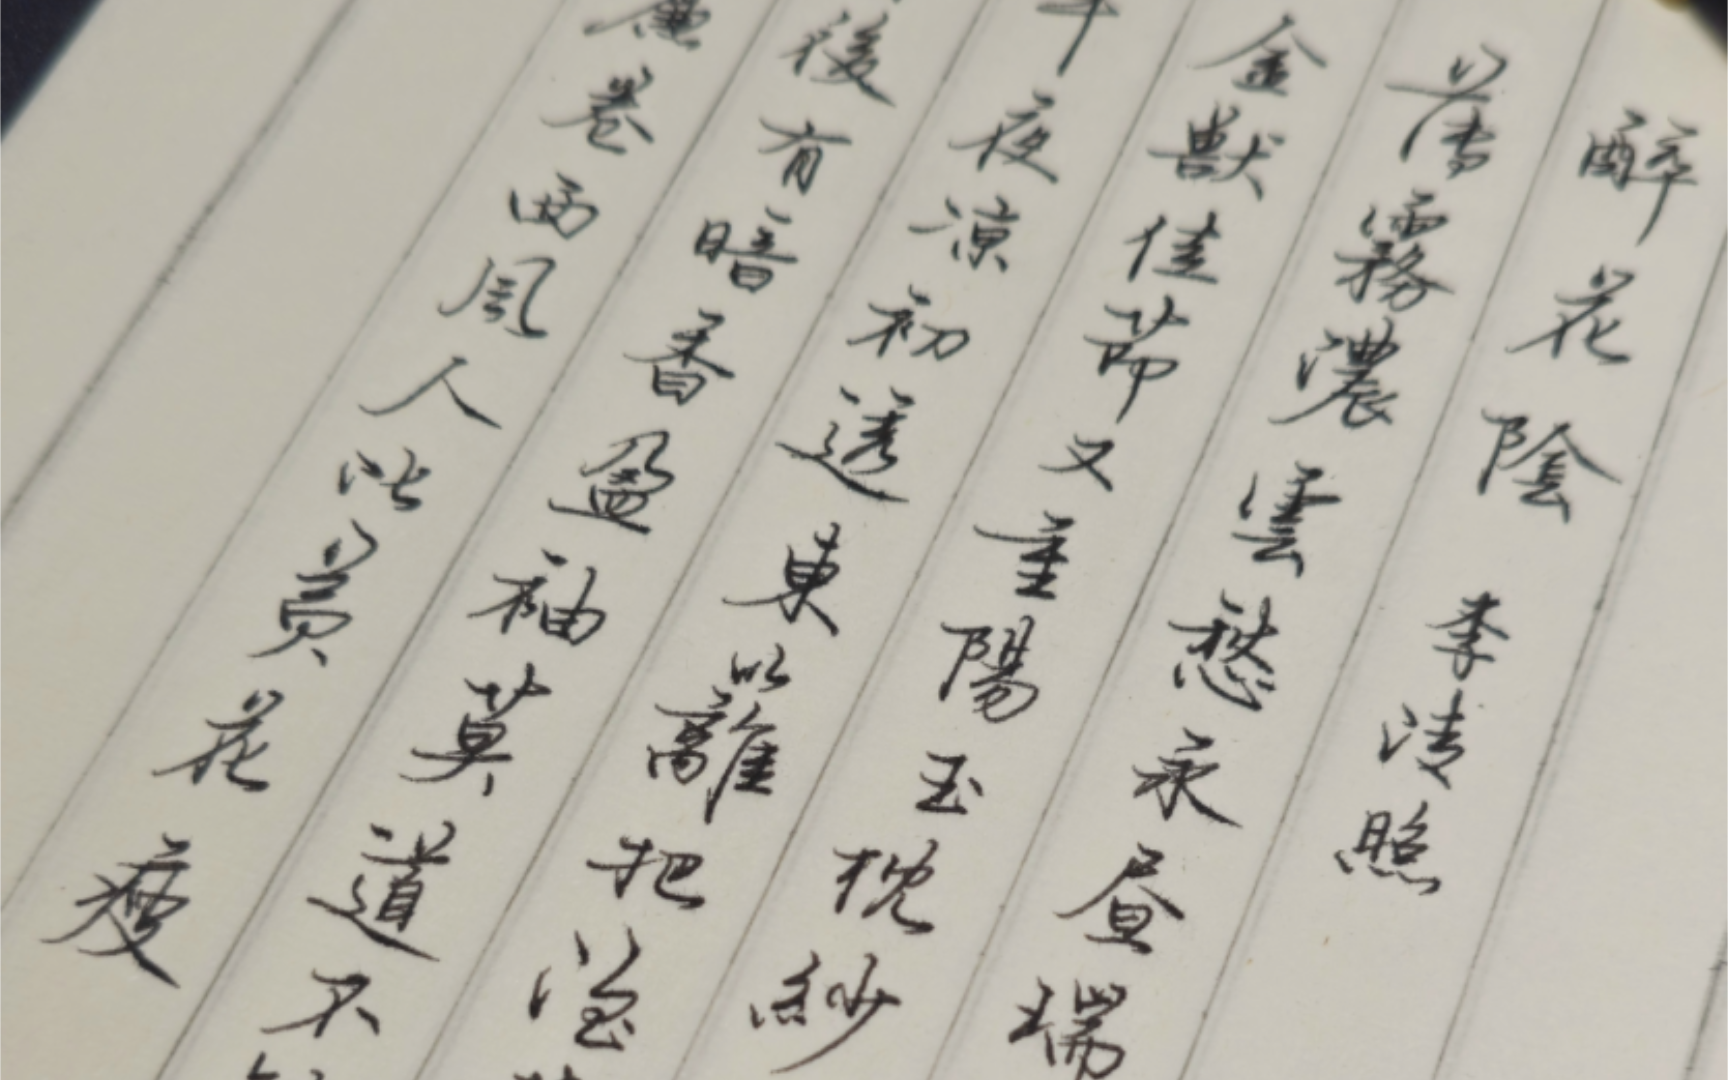 醉花陰 李清照
薄霧濃雲愁永昼瑞
金獸佳節又重陽玉枕紗
半夜凉初透東籬把酒
後有暗香盈袖莫道不
簾卷西風人比黃花瘦